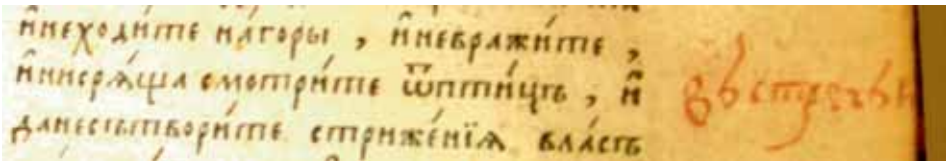 и҆неходи́те нагоры , и҆невражи́те ,
и҆нисрѧ́ща смотри́те ѿптицъ , и҆
данесътвори́те стриже́нїѧ власъ
встрѣчи